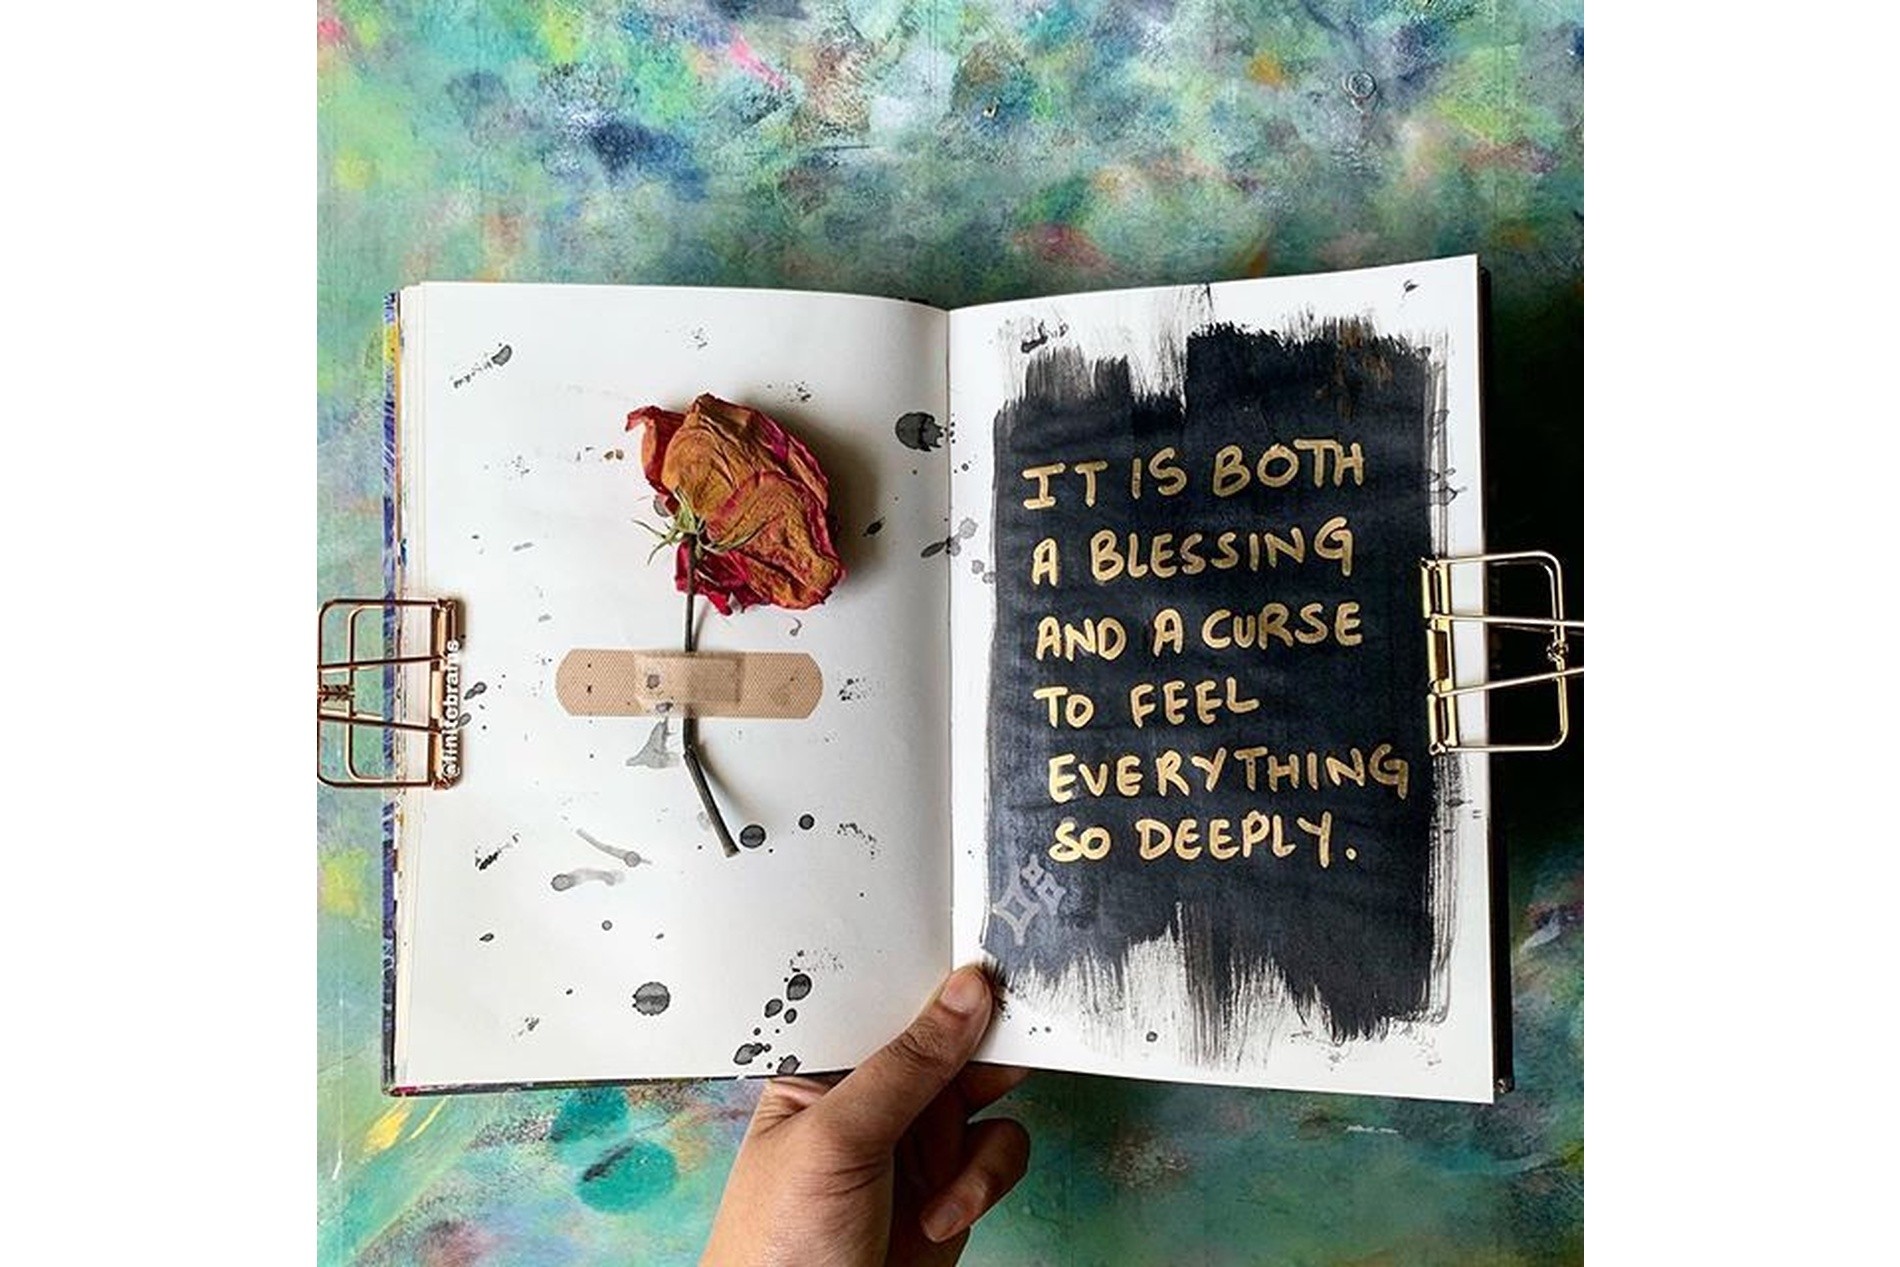 IT IS BOTH
A BLESSING
AND A CURSE
TO FEEL
EVERYTHING
SO DEEPLY.